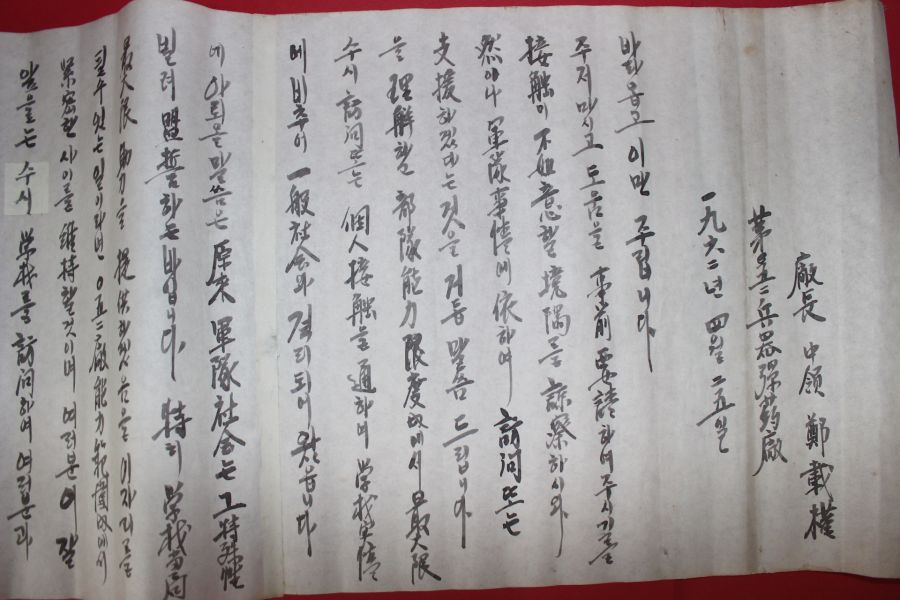 앞으로는 수시 学校를 訪問하여 여러분과
緊密한 사이를 維持할것이며 여러분이 잘
될수 있는일이라면 0五二廠能力範囲内에서
最大限 助力을 提供하겠음을 이자리를
빌려 盟誓하는바입니다. 特히 学校当局
에 아뢰올말씀은 原来 軍隊社会는 그特殊性
에 비추어 一般社会와 격리되어 왔읍니다
수시 訪問또는 個人接触을 通하여 学校実情
을 理解할 部隊能力限度内에서 最大限
支援하겠다는것을 거듭 말씀드립니다
然이나 軍隊事情에 依하여 訪問또는
接触이 不如意할 境遇를 諒察하시와
주지마시고 도움을 事前要請하여주시길
바라옵고 이만 주립니다
一九六二년 四월 二五일
第0五二兵器弾薬廠
廠長 中領 鄭載權